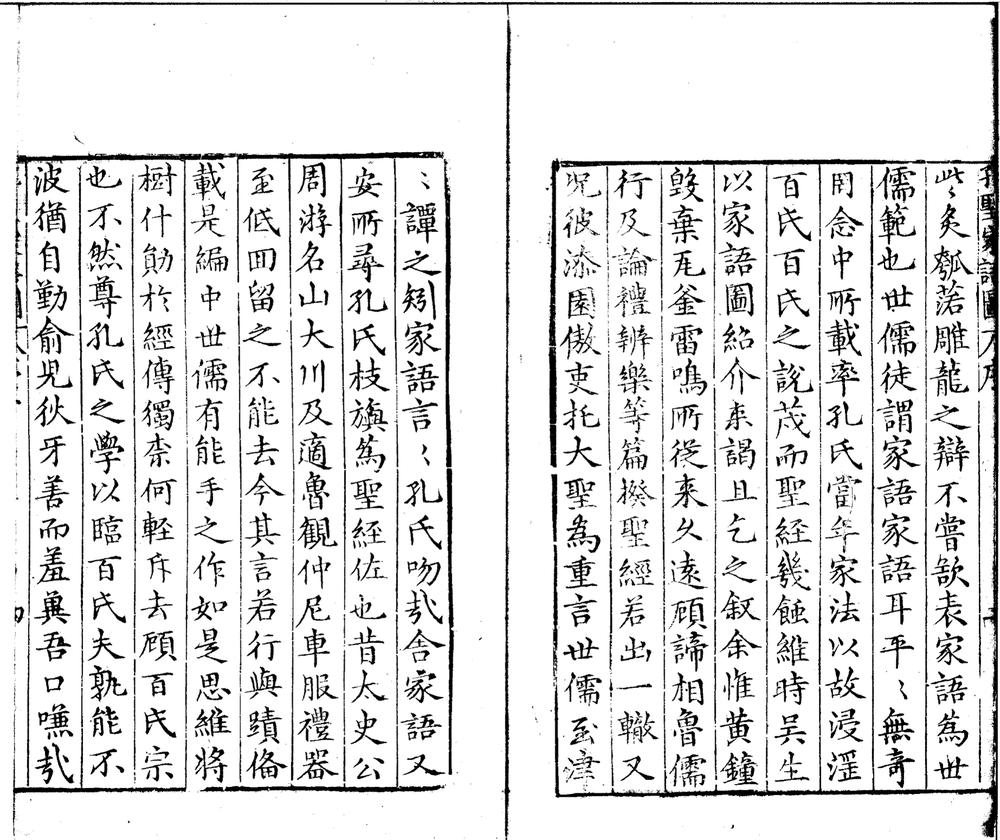 孔聖家語圖 序
此々炙瓠菭雕龍之辯不嘗歆表家語為世
儒範也世儒徒謂家語家語耳平〻無奇
罔念中所載率孔氏當年家法以故浸滛
百氏百氏之說茂而聖經幾蝕維時吳生
以家語圖紹介来謁且乞之叙余惟黄鐘
毀棄瓦釜雷鳴所從来久遠顧諦相魯儒
行及論禮辨樂等篇揆聖經若出一轍又
况彼漆園傲吏托大聖為重言世儒至津
〻譚之矧家語言〻孔氏吻㢤舍家語又
安所尋孔氏枝旗為聖經佐也昔太史公
周游名山大川及適魯觀仲尼車服禮器
至低囬留之不能去今其言若行與蹟俻
載是編中世儒有能手之作如是思維將
樹什勛扵經傳獨柰何軽斥去顧百氏宗
也不然尊孔氏之學以臨百氏夫孰能不
波猶自勤俞兒狄牙善而羞冀吾口嗛㢤